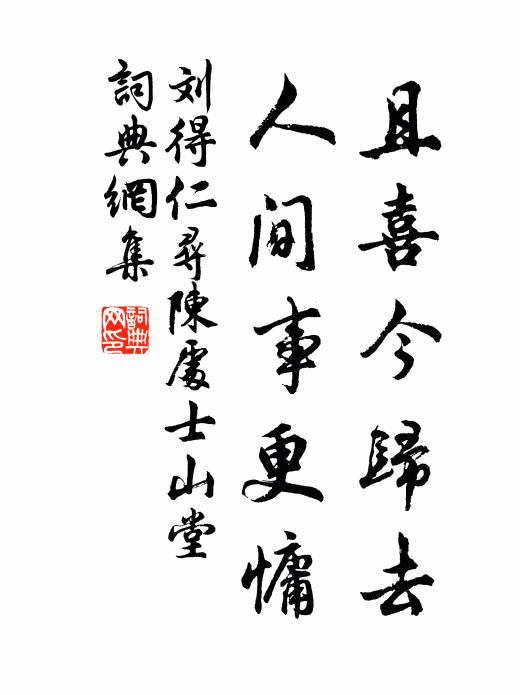 且喜今歸去
人间事更慵
刘得仁尋陳處士山堂
詞典網集
詞典網印